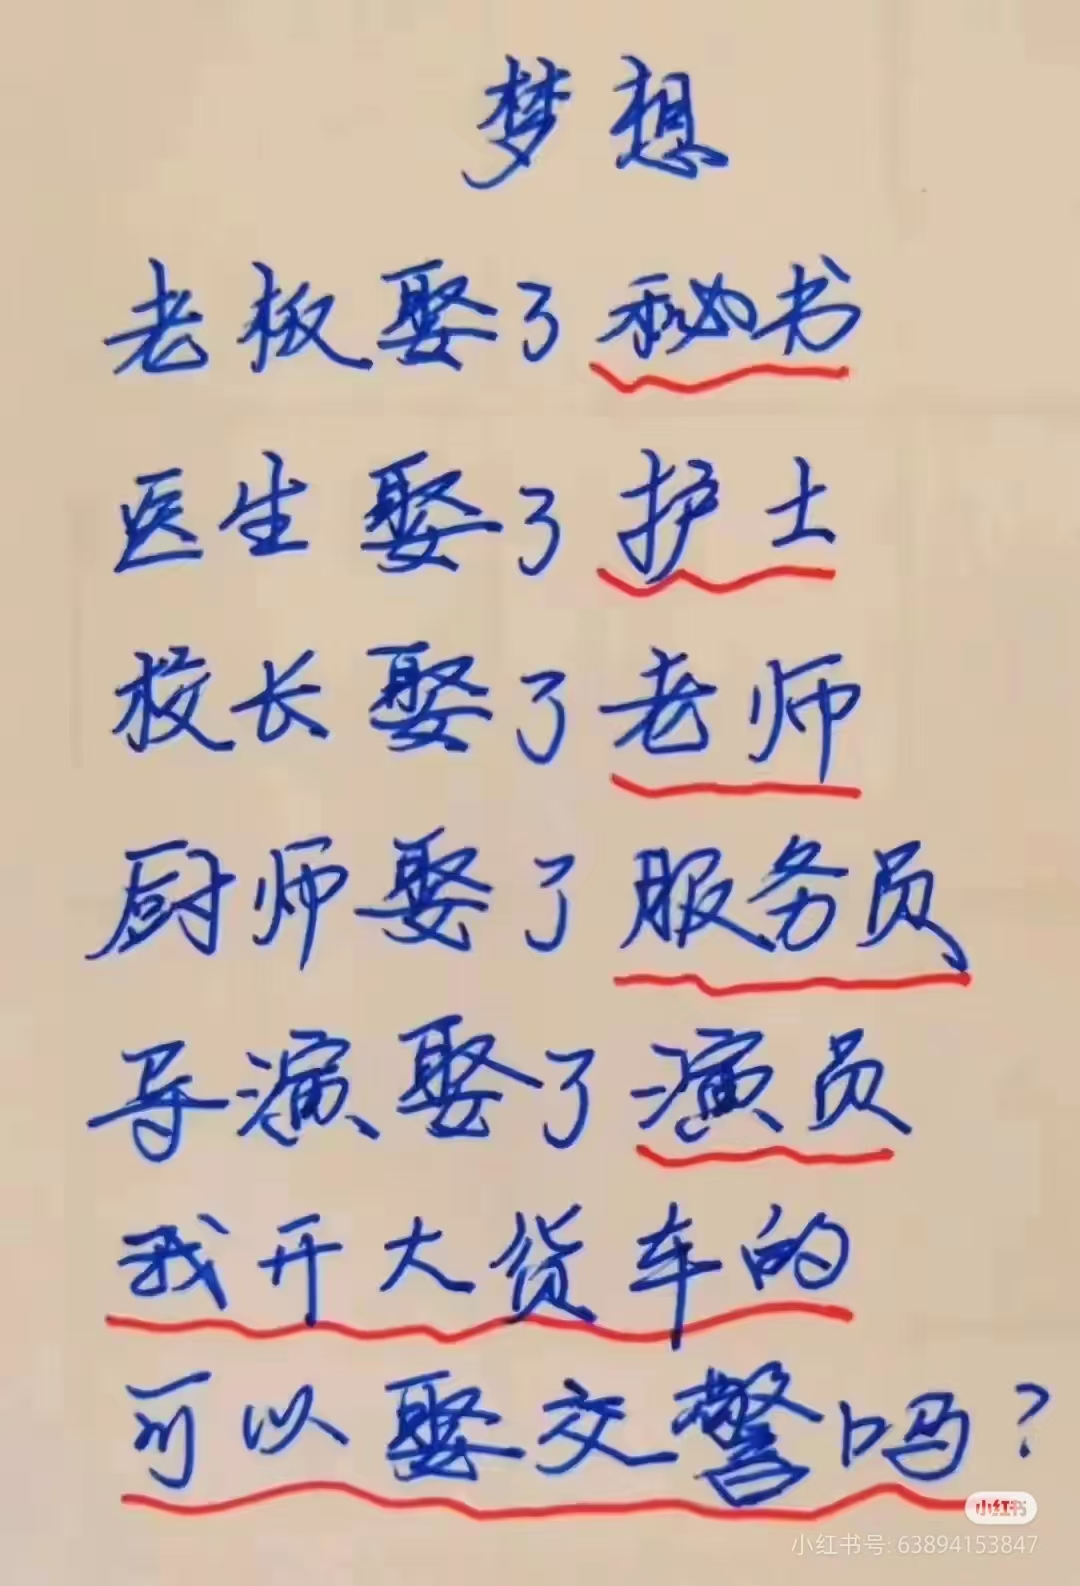 梦想
老板娶了秘书
医生娶了护士
校长娶了老师
厨师娶了服务员
导演娶了演员
我开大货车的
可以娶交警吗？
小红书
小红书号: 63894153847